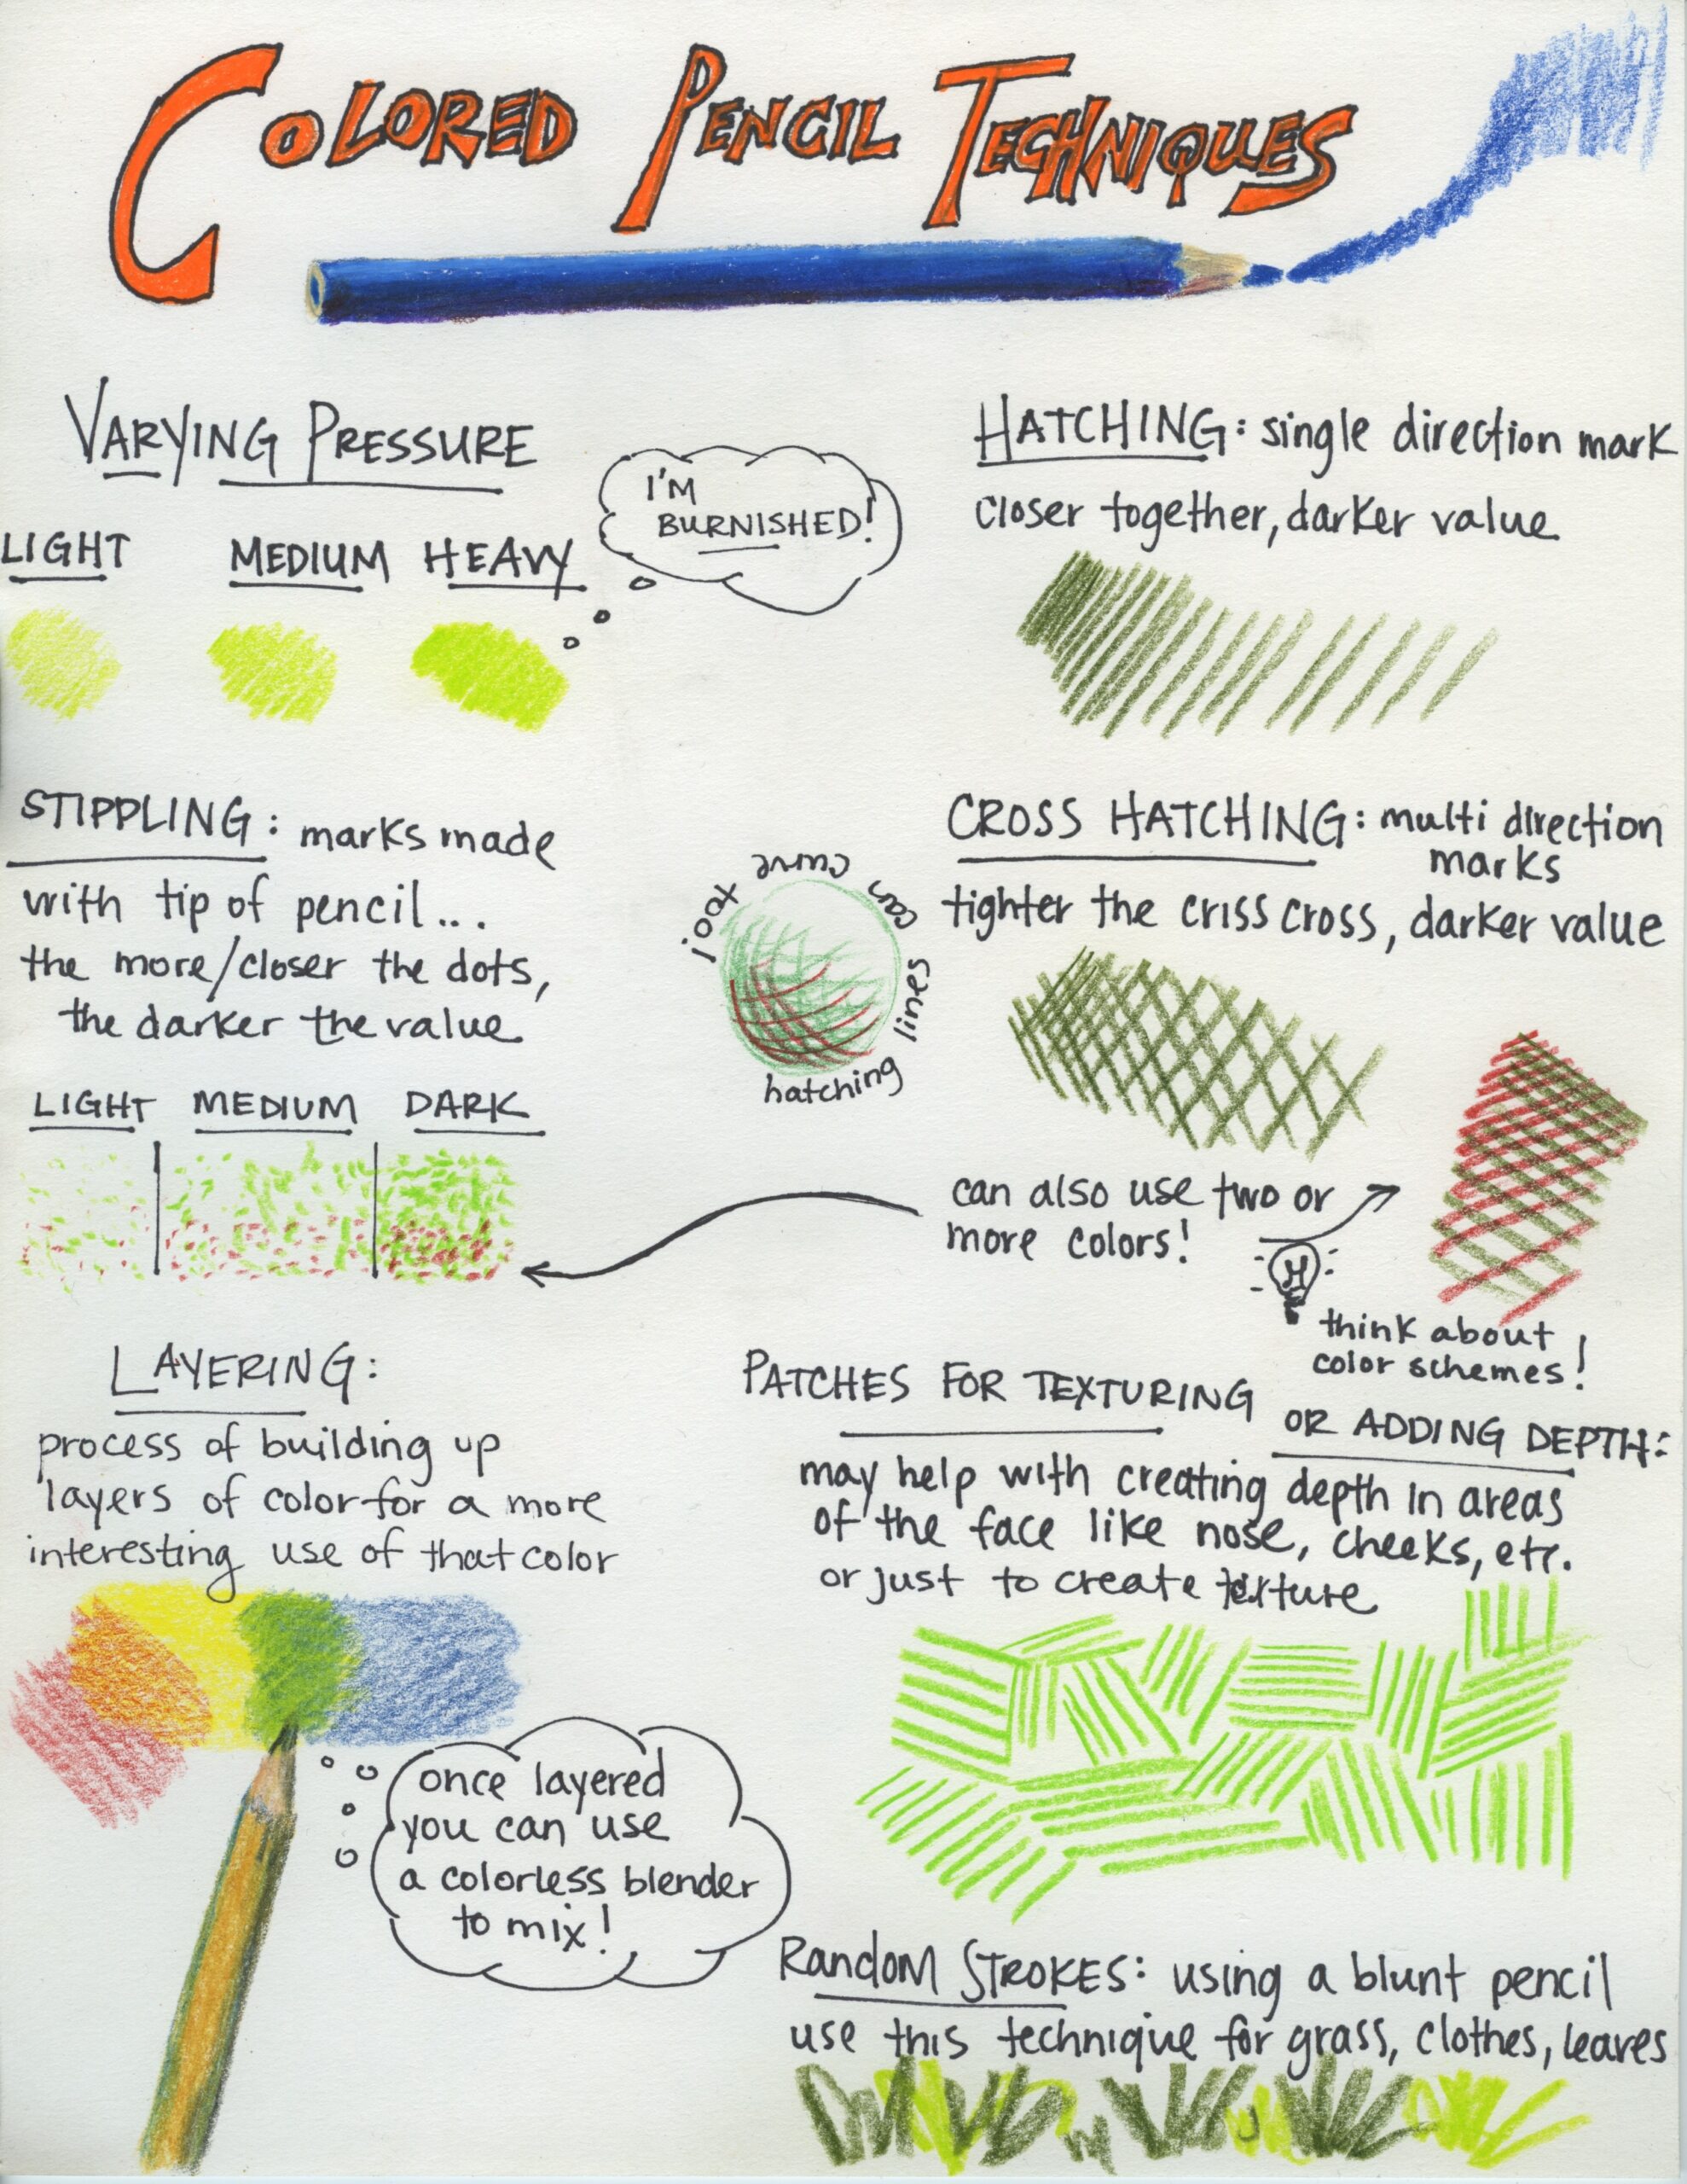 COLORED PENCIL TECHNIQUES
VARYING PRESSURE
LIGHT MEDIUM HEAVY
I'M
BURNISHED!
HATCHING: single direction mark
closer together, darker value
STIPPLING: marks made
with tip of pencil...
the more/closer the dots,
the darker the value
LIGHT MEDIUM DARK
hatching lines can curve too!
CROSS HATCHING: multi direction
marks
tighter the criss cross, darker value
can also use two or
more colors!
think about
color schemes!
LAYERING:
process of building up
layers of color for a more
interesting use of that color
once layered
you can use
a colorless blender
to mix!
PATCHES FOR TEXTURING
OR ADDING DEPTH:
may help with creating depth in areas
of the face like nose, cheeks, etc.
or just to create texture
RANDOM STROKES: using a blunt pencil
use this technique for grass, clothes, leaves